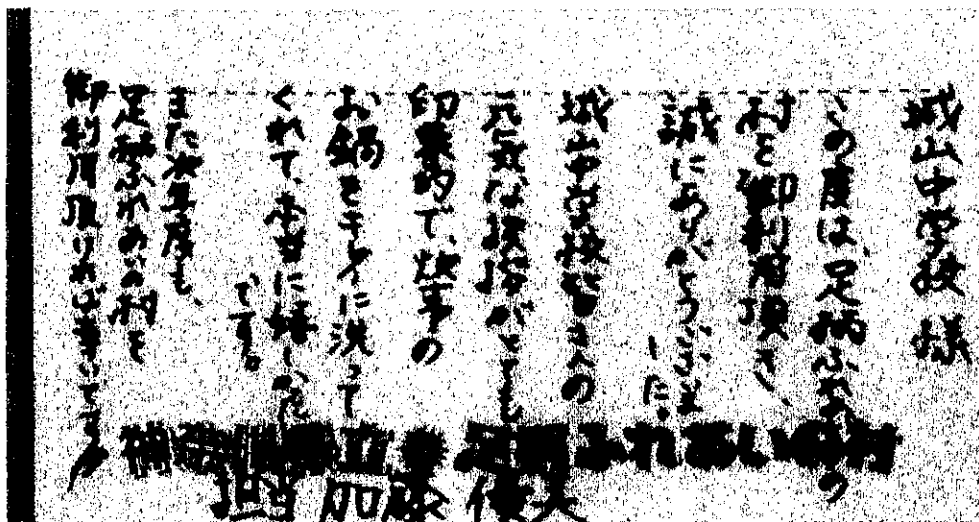 城山中学校 様
この度は、足柄ふれあいの
村を御利用頂き、
誠にありがとうございま
した。
城山中学校皆さんの
元気な挨拶がとても
印象的で、炊事の
お鍋をキレイに洗って
くれて、本当に嬉しかった
です。
また次年度も、
足柄ふれあいの村を
御利用頂ければ幸いです
神奈川県立 足柄ふれあいの村
担当 加藤